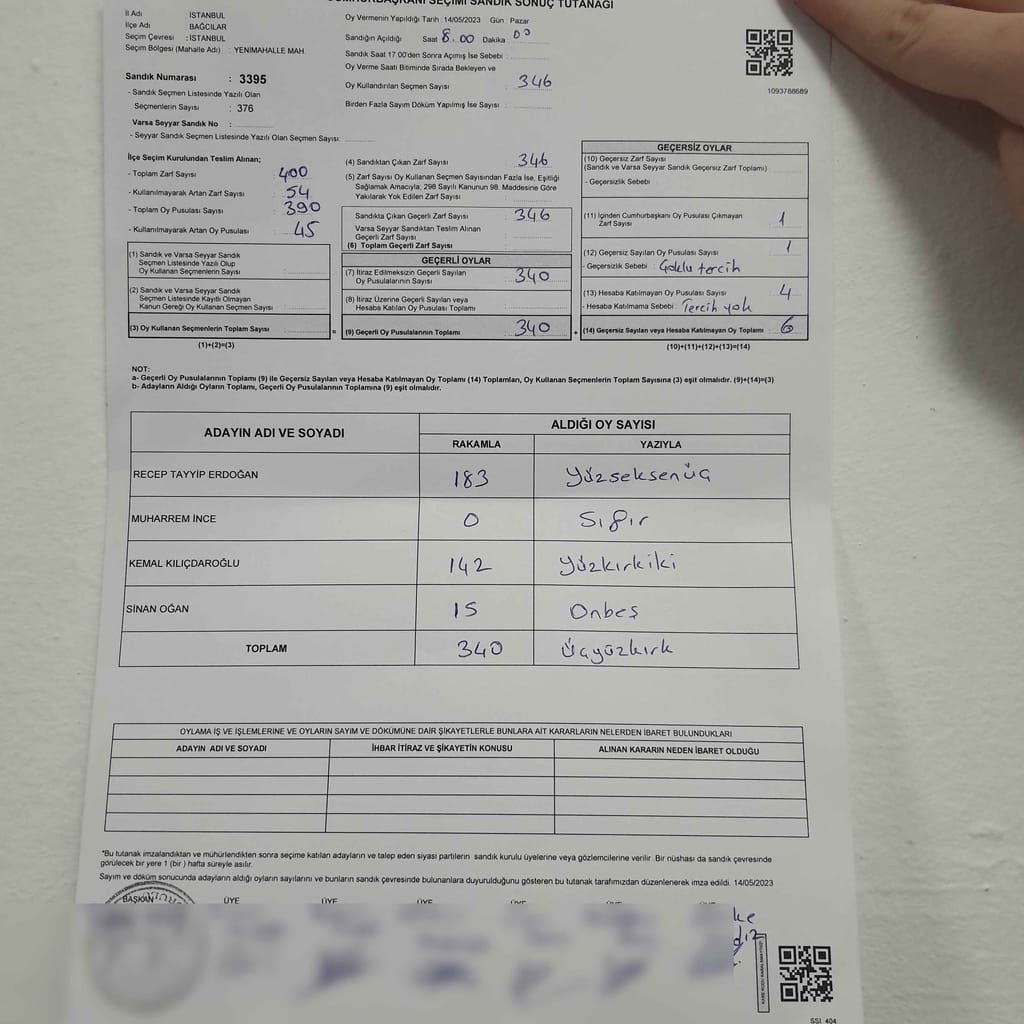 CUMHURBAŞKANI SEÇİMİ SANDIK SONUÇ TUTANAĞI
İl Adı : İSTANBUL
İlçe Adı : BAĞCILAR
Seçim Çevresi : İSTANBUL
Seçim Bölgesi (Mahalle Adı) : YENİMAHALLE MAH.
Sandık Numarası : 3395
- Sandık Seçmen Listesinde Yazılı Olan
Seçmenlerin Sayısı : 376
Varsa Seyyar Sandık No :
- Seyyar Sandık Seçmen Listesinde Yazılı Olan Seçmen Sayısı:
Oy Vermenin Yapıldığı Tarih : 14/05/2023 Gün : Pazar
Sandığın Açıldığı Saat 8:00 Dakika 00
Sandık Saat 17:00'den Sonra Açımış İse Sebebi :
Oy Verme Saati Bitiminde Sırada Bekleyen ve
Oy Kullandırılan Seçmen Sayısı : 346
Birden Fazla Sayım Döküm Yapılmış İse Sayısı :
1093788689
İlçe Seçim Kurulundan Teslim Alınan;
- Toplam Zarf Sayısı : 400
- Kullanılmayarak Artan Zarf Sayısı : 54
- Toplam Oy Pusulası Sayısı : 390
- Kullanılmayarak Artan Oy Pusulası : 45
(1) Sandık ve Varsa Seyyar Sandık
Seçmen Listesinde Yazılı Olup
Oy Kullanan Seçmenlerin Sayısı :
(2) Sandık ve Varsa Seyyar Sandık
Seçmen Listesinde Kayıtlı Olmayan
Kanun Gereği Oy Kullanan Seçmen Sayısı :
(3) Oy Kullanan Seçmenlerin Toplam Sayısı :
(1)+(2)=(3)
(4) Sandıktan Çıkan Zarf Sayısı : 346
(5) Zarf Sayısı Oy Kullanan Seçmen Sayısından Fazla İse, Eşitliği
Sağlamak Amacıyla, 298 Sayılı Kanunun 98. Maddesine Göre
Yakılarak Yok Edilen Zarf Sayısı :
Sandıkta Çıkan Geçerli Zarf Sayısı : 346
Varsa Seyyar Sandıktan Teslim Alınan
Geçerli Zarf Sayısı :
(6) Toplam Geçerli Zarf Sayısı :
GEÇERLİ OYLAR
(7) İtiraz Edilmeksizin Geçerli Sayılan
Oy Pusulalarının Sayısı : 340
(8) İtiraz Üzerine Geçerli Sayılan veya
Hesaba Katılan Oy Pusulası Toplamı :
= (9) Geçerli Oy Pusulalarının Toplamı : 340 +
GEÇERSİZ OYLAR
(10) Geçersiz Zarf Sayısı
(Sandık ve Varsa Seyyar Sandık Geçersiz Zarf Toplamı) :
- Geçersizlik Sebebi :
(11) İçinden Cumhurbaşkanı Oy Pusulası Çıkmayan
Zarf Sayısı : 1
(12) Geçersiz Sayılan Oy Pusulası Sayısı : 1
- Geçersizlik Sebebi : Çoklu tercih
(13) Hesaba Katılmayan Oy Pusulası Sayısı : 4
- Hesaba Katılmama Sebebi : Tercih yok
(14) Geçersiz Sayılan veya Hesaba Katılmayan Oy Toplamı : 6
(10)+(11)+(12)+(13)=(14)
NOT:
a- Geçerli Oy Pusulalarının Toplamı (9) ile Geçersiz Sayılan veya Hesaba Katılmayan Oy Toplamı (14) Toplamları, Oy Kullanan Seçmenlerin Toplam Sayısına (3) eşit olmalıdır. (9)+(14)=(3)
b- Adayların Aldığı Oyların Toplamı, Geçerli Oy Pusulalarının Toplamına (9) eşit olmalıdır.
ADAYIN ADI VE SOYADI ALDIĞI OY SAYISI
RAKAMLA YAZIYLA
RECEP TAYYİP ERDOĞAN 183 Yüzseksenüç
MUHARREM İNCE 0 Sıfır
KEMAL KILIÇDAROĞLU 142 Yüzkırkiki
SİNAN OĞAN 15 Onbeş
TOPLAM 340 Üçyüzkırk
OYLAMA İŞ VE İŞLEMLERİNE VE OYLARIN SAYIM VE DÖKÜMÜNE DAİR ŞİKAYETLERLE BUNLARA AİT KARARLARIN NELERDEN İBARET BULUNDUKLARI
ADAYIN ADI VE SOYADI İHBAR İTİRAZ VE ŞİKAYETİN KONUSU ALINAN KARARIN NEDEN İBARET OLDUĞU
*Bu tutanak imzalandıktan ve mühürlendikten sonra seçime katılan adayların ve talep eden siyasi partilerin sandık kurulu üyelerine veya gözlemcilerine verilir. Bir nüshası da sandık çevresinde
görülecek bir yere 1 (bir) hafta süreyle asılır.
Sayım ve döküm sonucunda adayların aldığı oyların sayılarını ve bunların sandık çevresinde bulunanlara duyurulduğunu gösteren bu tutanak tarafımızdan düzenlenerek imza edildi. 14/05/2023
BAŞKAN ÜYE ÜYE ÜYE ÜYE ÜYE
SSI: 404